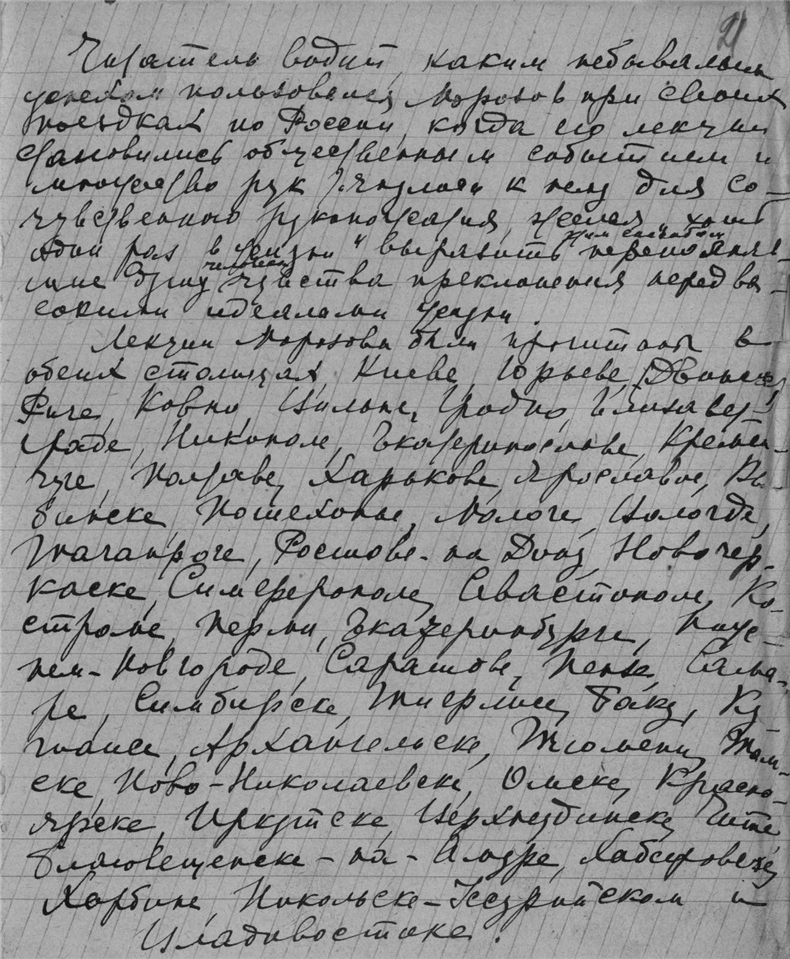 21
Читатель видит, каким небывалым
успехом пользовался Морозов при своих
поездках по России, когда его лекции
становились общественным событием и
множество рук тянулись к нему для со-
чувственного рукопожатия, желая „хоть
один раз в жизни“ выразить этим способом переполняв-
шие душу чувства преклонения перед вы-
сокими идеалами жизни.
Лекции Морозова были прочитаны в
обеих столицах, Киеве, Юрьеве, Двинске,
Риге, Ковно, Вильне, Гродно, Елизавет-
граде, Никополе, Екатеринославе, Кремен-
чуге, Полтаве, Харькове, Ярославле, Ры-
бинске, Пошехонье, Мологе, Вологде,
Таганроге, Ростове-на-Дону, Новочер-
каске, Симферополе, Севастополе, Ко-
строме, Перми, Екатеринбурге, Ниж-
нем-Новгороде, Саратове, Пензе, Сама-
ре, Симбирске, Тифлисе, Баку, Ку-
таисе, Архангельске, Тюмени, Том-
ске, Ново-Николаевске, Омске, Красно-
ярске, Иркутске, Верхнеудинске, Чите,
Благовещенске-на-Амуре, Хабаровске,
Харбине, Никольске-Уссурийском и
Владивостоке.